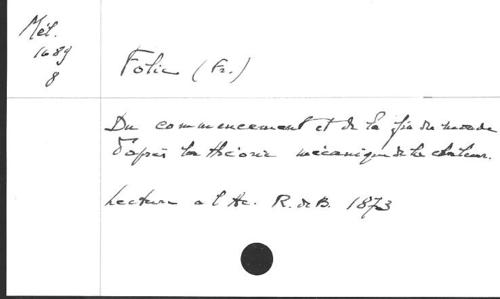 Mél.
1689
8
Folie (Fr.)
Du commencement et de la fin du monde
d'après la théorie mécanique de la chaleur.
Lecture à l'Ac. R. de B. 1873